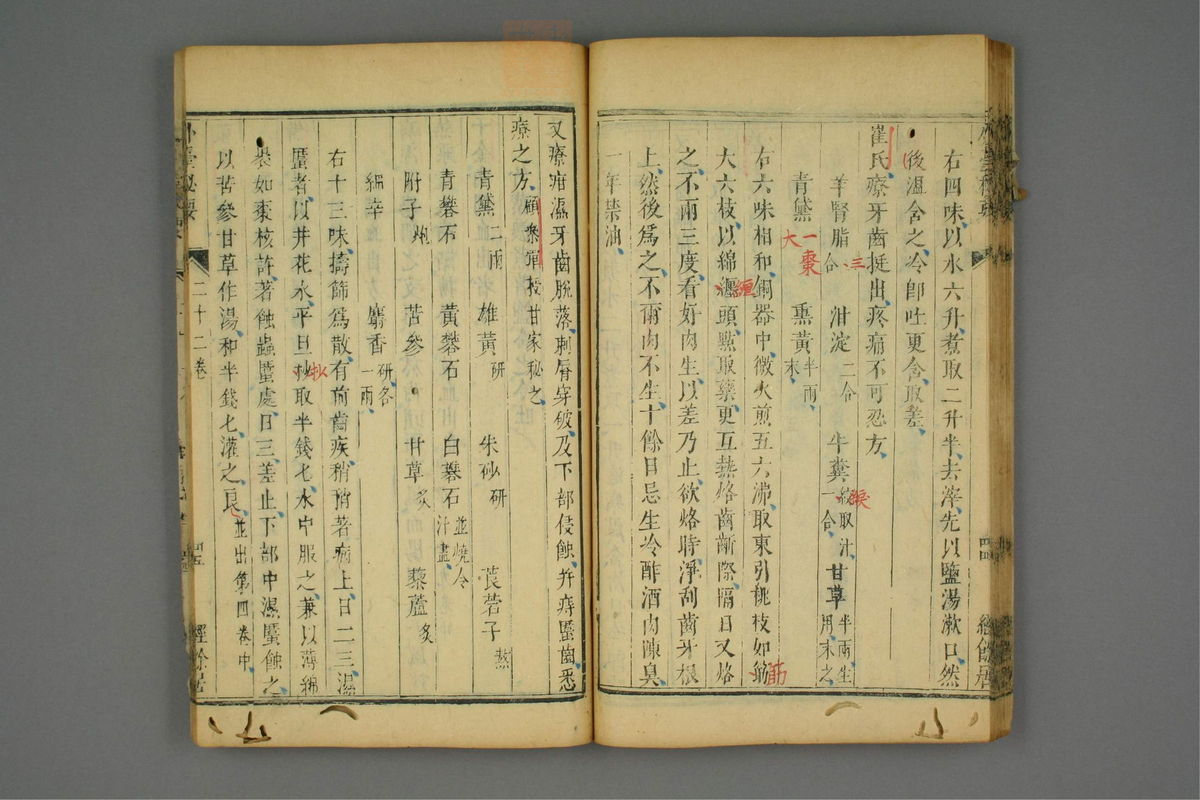 右四味以水六升煮取二升半去滓先以鹽湯漱口然
後溫含之冷卽吐更含取差
崔氏療牙齒挺出疼痛不可忍方
羊腎脂合 三 泔淀二合 牛糞絞取汁一合 甘草半兩生用末之
青黛 一棗大 熏黃半兩末
右六味相和銅器中微火煎五六沸取東引桃枝如筯
大六枝以綿纏頭點取藥更互熱烙齒齗際隔日又烙
之不兩三度看好肉生以差乃止欲烙時淨刮齒牙根
上然後爲之不爾肉不生十餘日忌生冷酢酒肉陳臭
一年禁油
又療疳濕牙齒脫落劓脣穿破及下部侵蝕并痔䘌齒悉
療之方
青黛二兩 雄黃研 朱砂研 莨菪子熬
青礬石 黃礬石 白礬石並燒令汁盡
附子炮 苦參 甘草炙 藜蘆炙
細辛 麝香研各一兩
右十三味擣篩爲散有前齒疾稍稍著病上日二三濕
䘌者以井花水平旦抄取半錢匕水中服之兼以薄綿
裝如棗核許著蝕蟲䘌處日三差止下部中濕䘌蝕之
以苦參甘草作湯和半錢匕灌之良並出第四卷中
二十二卷
經餘居